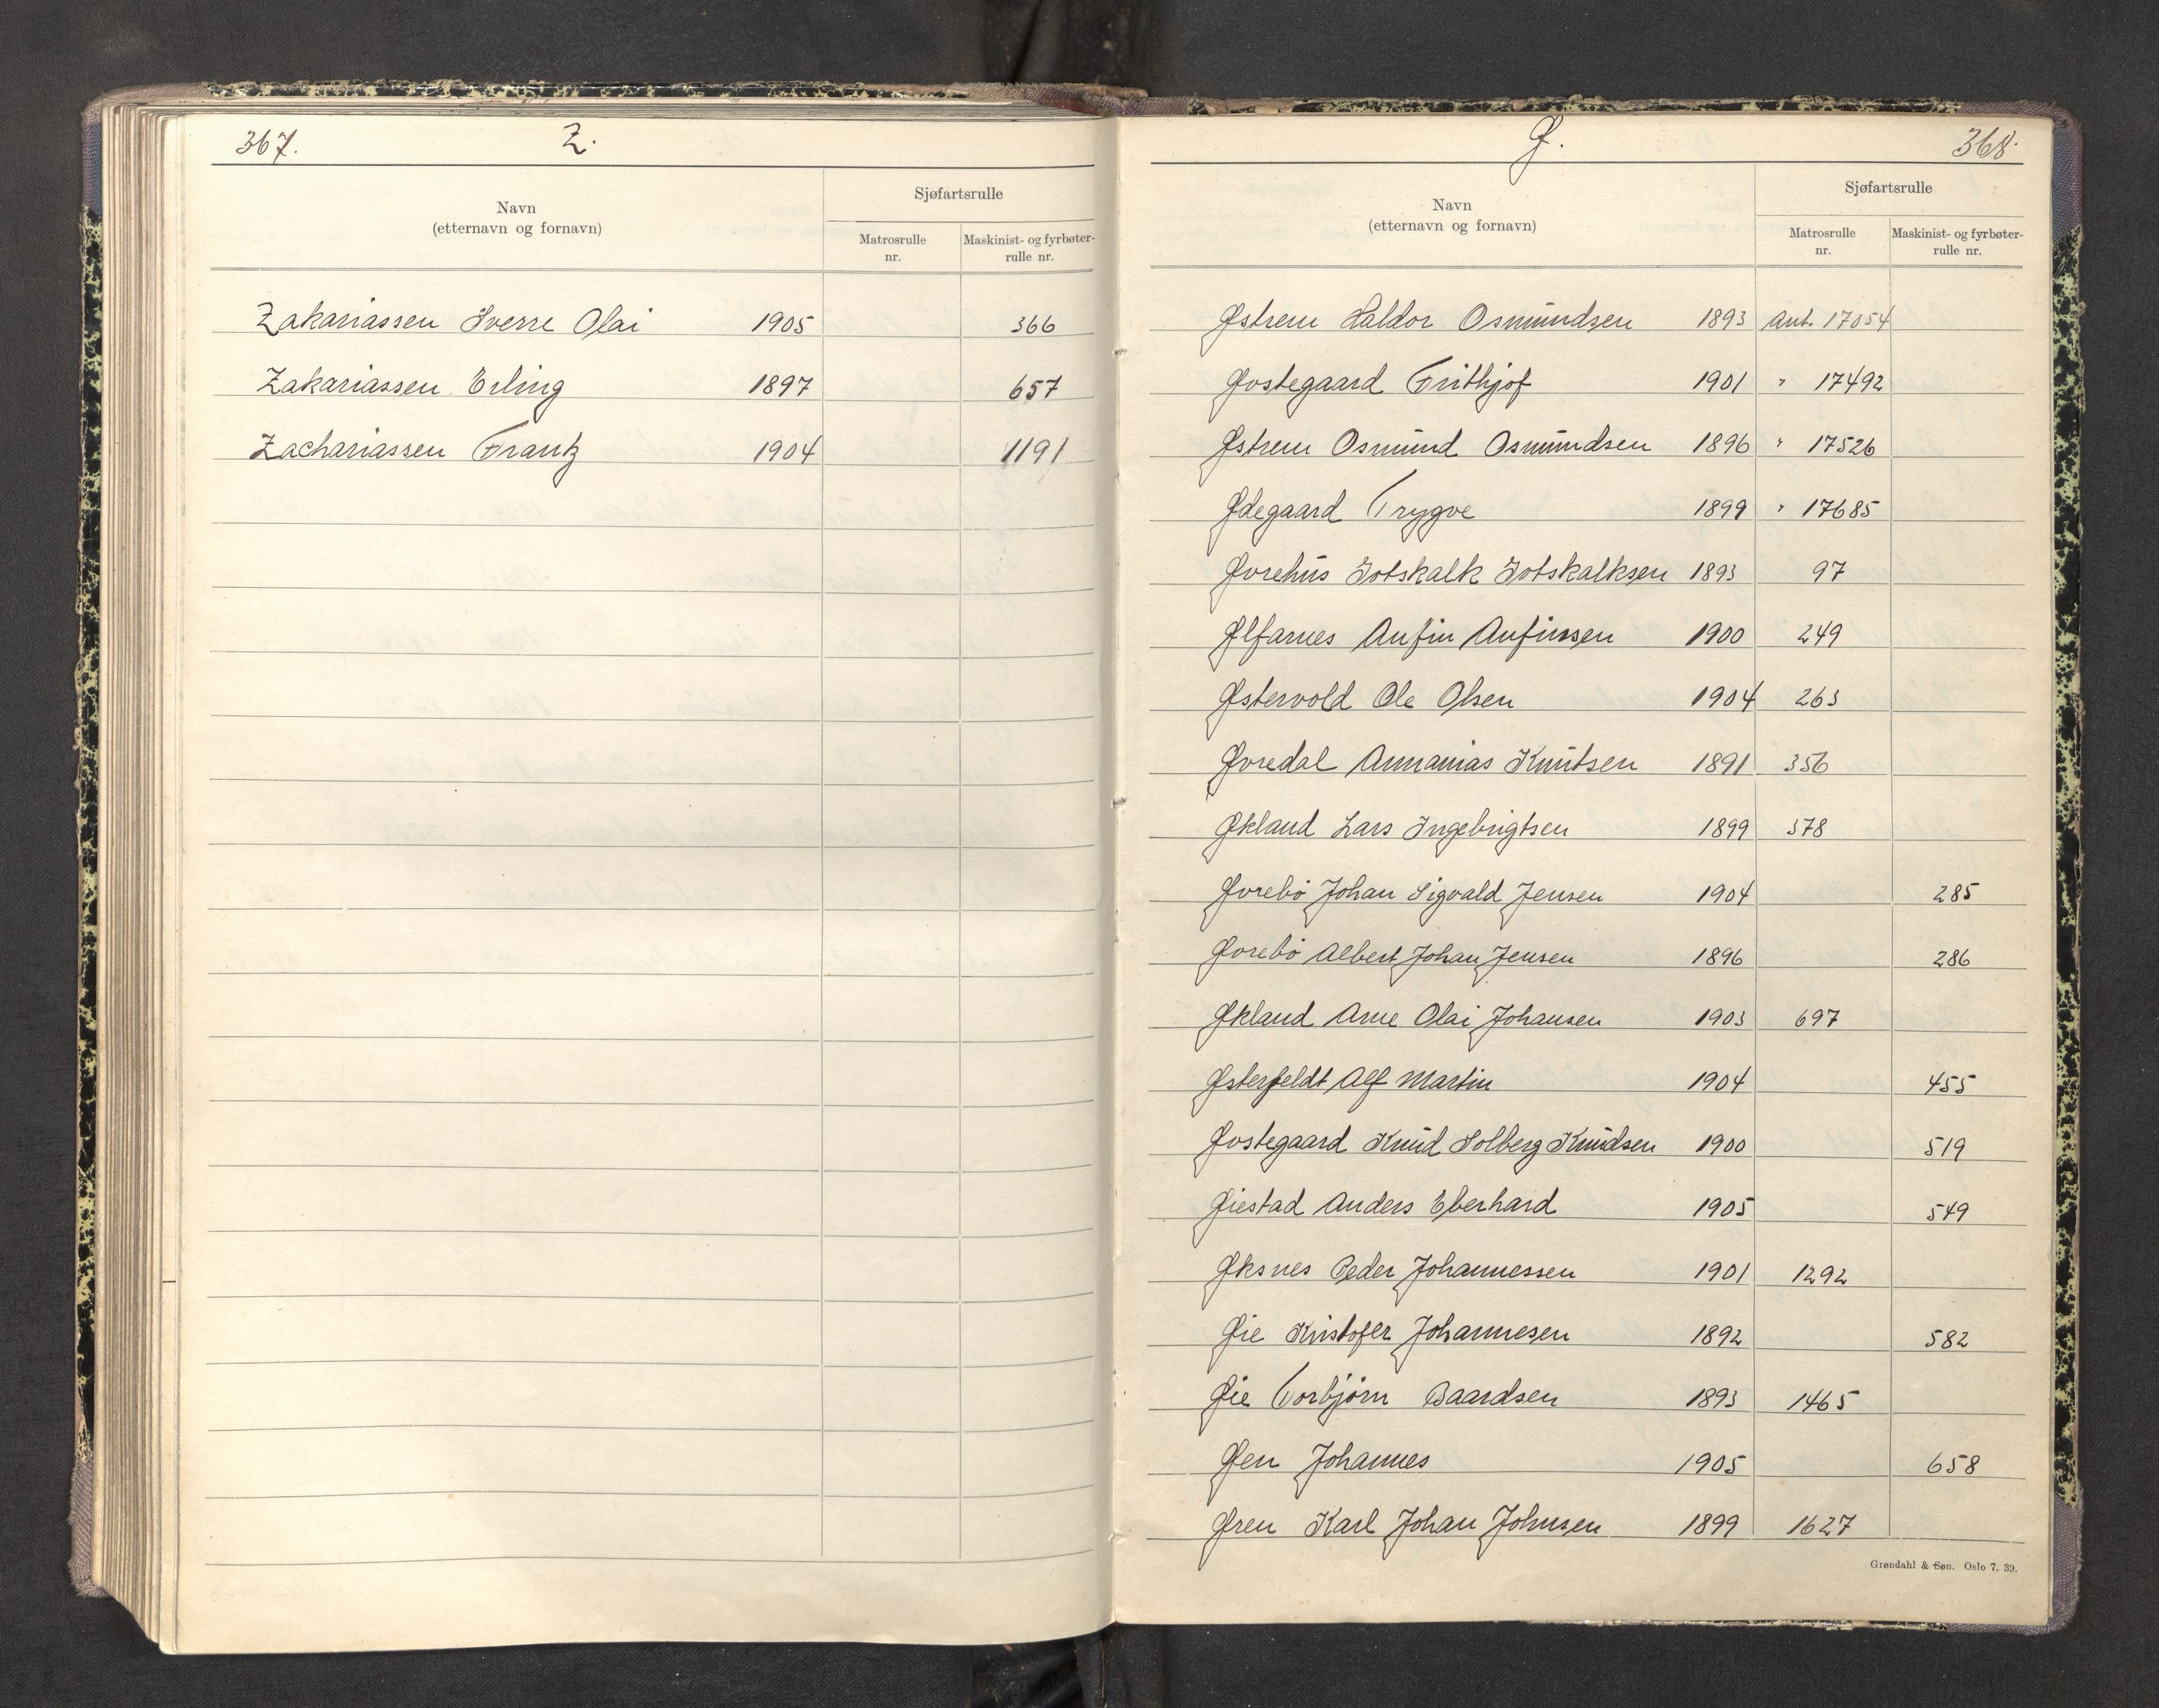 367. Z.
Sjøfartsrulle
Navn
(etternavn og fornavn)
Matrosrulle nr.
Maskinist- og fyrbøter-rulle nr.
Zakariassen Sverre Olai 1905 366
Zakariassen Erling 1897 657
Zachariassen Frantz 1904 1191
Ø. 368.
Sjøfartsrulle
Navn
(etternavn og fornavn)
Matrosrulle nr.
Maskinist- og fyrbøter-rulle nr.
Østrem Haldor Osmundsen 1893 Ant. 17054
Øvstegaard Frithjof 1901 " 17492
Østrem Osmund Osmundsen 1896 " 17526
Ødegaard Trygve 1899 " 17685
Øvrehus Gotskalk Gotskalksen 1893 97
Ølfarnes Anfin Anfinsen 1900 249
Østervold Ole Olsen 1904 263
Øvredal Annanias Knutsen 1891 356
Økland Lars Ingebrigtsen 1899 378
Øvrebö Johan Sigvald Jensen 1904 285
Øvrebö Albert Johan Jensen 1896 286
Økland Arne Olai Johansen 1903 697
Østerfeldt Alf Martin 1904 455
Øvstegaard Knud Solberg Knudsen 1900 519
Øiestad Anders Eberhard 1905 549
Øksnes Peder Johannessen 1901 1292
Øie Kristofer Johannesen 1892 582
Øie Torbjörn Baardsen 1893 1465
Øen Johannes 1905 658
Øren Karl Johan Johnsen 1899 1627
Grøndahl & Søn. Oslo 7. 39.